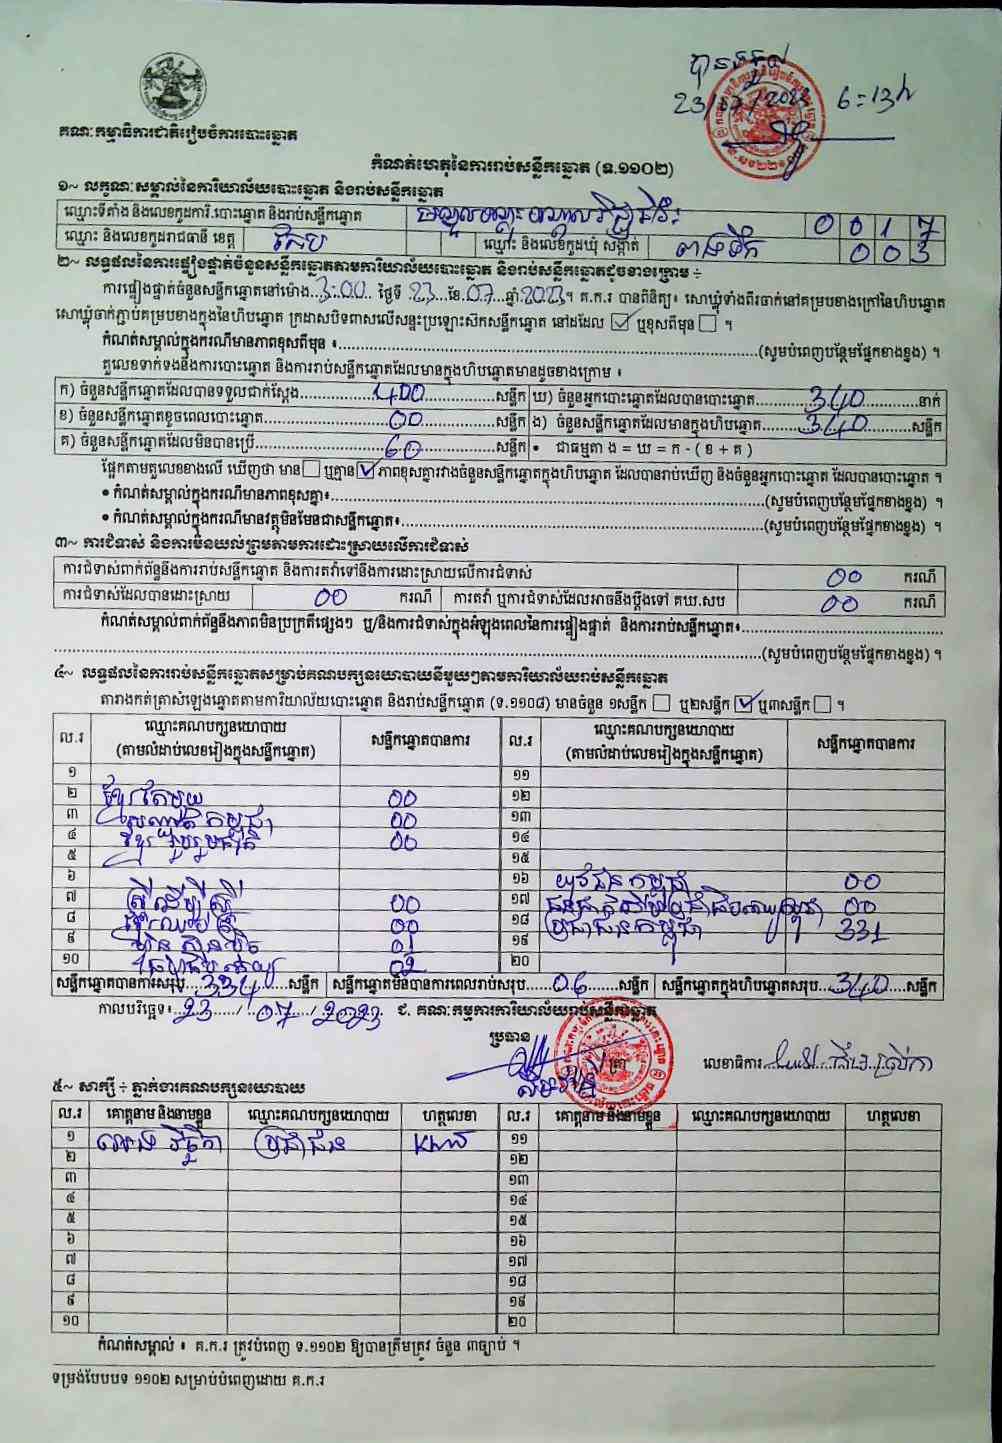 បានទទួល
23/07/2023 6:13h
គណៈកម្មាធិការជាតិរៀបចំការបោះឆ្នោត
កំណត់ហេតុនៃការរាប់សន្លឹកឆ្នោត (ទ.១១០២)
១~ លក្ខណៈសម្គាល់នៃការិយាល័យបោះឆ្នោត និងរាប់សន្លឹកឆ្នោត
ឈ្មោះទីតាំង និងលេខកូដការិ.បោះឆ្នោត និងរាប់សន្លឹកឆ្នោត 0 0 1 7
ឈ្មោះ និងលេខកូដរាជធានី ខេត្ត កែប ឈ្មោះ និងលេខកូដឃុំ សង្កាត់ 0 0 3
២~ លទ្ធផលនៃការផ្ទៀងផ្ទាត់ចំនួនសន្លឹកឆ្នោតតាមការិយាល័យបោះឆ្នោត និងរាប់សន្លឹកឆ្នោតដូចខាងក្រោម ÷
ការផ្ទៀងផ្ទាត់ចំនួនសន្លឹកឆ្នោតនៅម៉ោង...3:00 ថ្ងៃទី 23 ខែ 07 ឆ្នាំ 2023។ គ.ក.រ បានពិនិត្យ៖ សោឃ្លុំទាំងពីរចាក់នៅគម្របខាងក្រៅនៃហិបឆ្នោត
សោឃ្លុំចាក់ភ្ជាប់គម្របខាងក្នុងនៃហិបឆ្នោត ក្រដាសបិទពាសលើសន្ទះប្រឡោះស៊កសន្លឹកឆ្នោត នៅដដែល ☑ ឬខុសពីមុន ☐ ។
កំណត់សម្គាល់ក្នុងករណីមានភាពខុសពីមុន ៖......(សូមបំពេញបន្ថែមផ្នែកខាងខ្នង) ។
តួលេខទាក់ទងនឹងការបោះឆ្នោត និងការរាប់សន្លឹកឆ្នោតដែលមានក្នុងហិបឆ្នោតមានដូចខាងក្រោម ៖
ក) ចំនួនសន្លឹកឆ្នោតដែលបានទទួលជាក់ស្តែង......400......សន្លឹក ឃ) ចំនួនអ្នកបោះឆ្នោតដែលបានបោះឆ្នោត......340......នាក់
ខ) ចំនួនសន្លឹកឆ្នោតខូចពេលបោះឆ្នោត......00......សន្លឹក ង) ចំនួនសន្លឹកឆ្នោតដែលមានក្នុងហិបឆ្នោត......340......សន្លឹក
គ) ចំនួនសន្លឹកឆ្នោតដែលមិនបានប្រើ......60......សន្លឹក • ជាធម្មតា ង = ឃ = ក - ( ខ + គ )
ផ្អែកតាមតួលេខខាងលើ ឃើញថា មាន ☐ ឬគ្មាន ☑ ភាពខុសគ្នារវាងចំនួនសន្លឹកឆ្នោតក្នុងហិបឆ្នោត ដែលបានរាប់ឃើញ និងចំនួនអ្នកបោះឆ្នោត ដែលបានបោះឆ្នោត ។
• កំណត់សម្គាល់ក្នុងករណីមានភាពខុសគ្នា៖......(សូមបំពេញបន្ថែមផ្នែកខាងខ្នង) ។
• កំណត់សម្គាល់ក្នុងករណីមានវត្ថុមិនមែនជាសន្លឹកឆ្នោត៖......(សូមបំពេញបន្ថែមផ្នែកខាងខ្នង) ។
៣~ ការជំទាស់ និងការមិនយល់ព្រមតាមការដោះស្រាយលើការជំទាស់
ការជំទាស់ពាក់ព័ន្ធនឹងការរាប់សន្លឹកឆ្នោត និងការតវ៉ាទៅនឹងការដោះស្រាយលើការជំទាស់ 00 ករណី
ការជំទាស់ដែលបានដោះស្រាយ 00 ករណី ការតវ៉ា ឬការជំទាស់ដែលអាចនឹងប្តឹងទៅ គឃ.សប 00 ករណី
កំណត់សម្គាល់ពាក់ព័ន្ធនឹងភាពមិនប្រក្រតីផ្សេងៗ ឬ/និងការជំទាស់ក្នុងអំឡុងពេលនៃការផ្ទៀងផ្ទាត់ និងការរាប់សន្លឹកឆ្នោត៖......
......(សូមបំពេញបន្ថែមផ្នែកខាងខ្នង) ។
៤~ លទ្ធផលនៃការរាប់សន្លឹកឆ្នោតសម្រាប់គណបក្សនយោបាយនីមួយៗតាមការិយាល័យរាប់សន្លឹកឆ្នោត
តារាងកត់ត្រាសំឡេងឆ្នោតតាមការិយាល័យបោះឆ្នោត និងរាប់សន្លឹកឆ្នោត (ទ.១១០៨) មានចំនួន ១សន្លឹក ☐ ឬ២សន្លឹក ☑ ឬ៣សន្លឹក ☐ ។
ល.រ ឈ្មោះគណបក្សនយោបាយ (តាមលំដាប់លេខរៀងក្នុងសន្លឹកឆ្នោត) សន្លឹកឆ្នោតបានការ ល.រ ឈ្មោះគណបក្សនយោបាយ (តាមលំដាប់លេខរៀងក្នុងសន្លឹកឆ្នោត) សន្លឹកឆ្នោតបានការ
១ ១១
២ ខ្មែរតែមួយ 00 ១២
៣ សញ្ជាតិកម្ពុជា 00 ១៣
៤ ខ្មែររួបរួមជាតិ 00 ១៤
៥ ១៥
៦ ១៦ យុវជនកម្ពុជា 00
៧ ស្ត្រីដើម្បីស្ត្រី 00 ១៧ 00
៨ 00 ១៨ ប្រជាជនកម្ពុជា 331
៩ ហ្វ៊ុនស៊ិនប៉ិច 01 ១៩
១០ 02 ២០
សន្លឹកឆ្នោតបានការសរុប...334...សន្លឹក សន្លឹកឆ្នោតមិនបានការពេលរាប់សរុប...06...សន្លឹក សន្លឹកឆ្នោតក្នុងហិបឆ្នោតសរុប...340...សន្លឹក
កាលបរិច្ឆេទ៖ 23 / 07 / 2023 ជ. គណៈកម្មការការិយាល័យរាប់សន្លឹកឆ្នោត
ប្រធាន
លេខាធិការ
៥~ សាក្សី ÷ ភ្នាក់ងារគណបក្សនយោបាយ
ល.រ គោត្តនាម និងនាមខ្លួន ឈ្មោះគណបក្សនយោបាយ ហត្ថលេខា ល.រ គោត្តនាម និងនាមខ្លួន ឈ្មោះគណបក្សនយោបាយ ហត្ថលេខា
១ ប្រជាជន ១១
២ ១២
៣ ១៣
៤ ១៤
៥ ១៥
៦ ១៦
៧ ១៧
៨ ១៨
៩ ១៩
១០ ២០
កំណត់សម្គាល់ ៖ គ.ក.រ ត្រូវបំពេញ ទ.១១០២ ឱ្យបានត្រឹមត្រូវ ចំនួន ៣ច្បាប់ ។
ទម្រង់បែបបទ ១១០២ សម្រាប់បំពេញដោយ គ.ក.រ